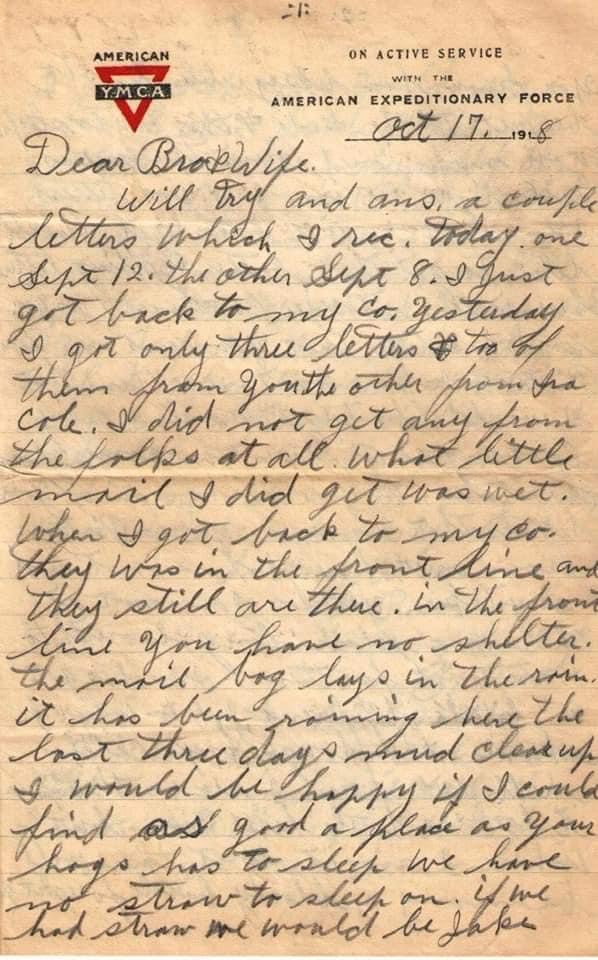 -:1:-
AMERICAN
Y.M.C.A.
ON ACTIVE SERVICE
WITH THE
AMERICAN EXPEDITIONARY FORCE
Oct 17. 1918
Dear Bro & Wife.
Will try and ans. a couple
letters which I rec. today. one
Sept 12. the other Sept 8. I Just
got back to my Co. Yesterday
I got only three letters too of
them from You the other from Ira
Cole. I did not get any from
the folks at all. what little
mail I did get was wet.
When I got back to my Co.
they was in the front line and
they still are there. in the front
line You have no shelter.
the mail bag lays in the rain.
it has been raining here the
last three days mud clear up
I would be happy if I could
find as good a place as Your
hogs has to sleep we have
no straw to sleep on. if we
had straw we would be Jake